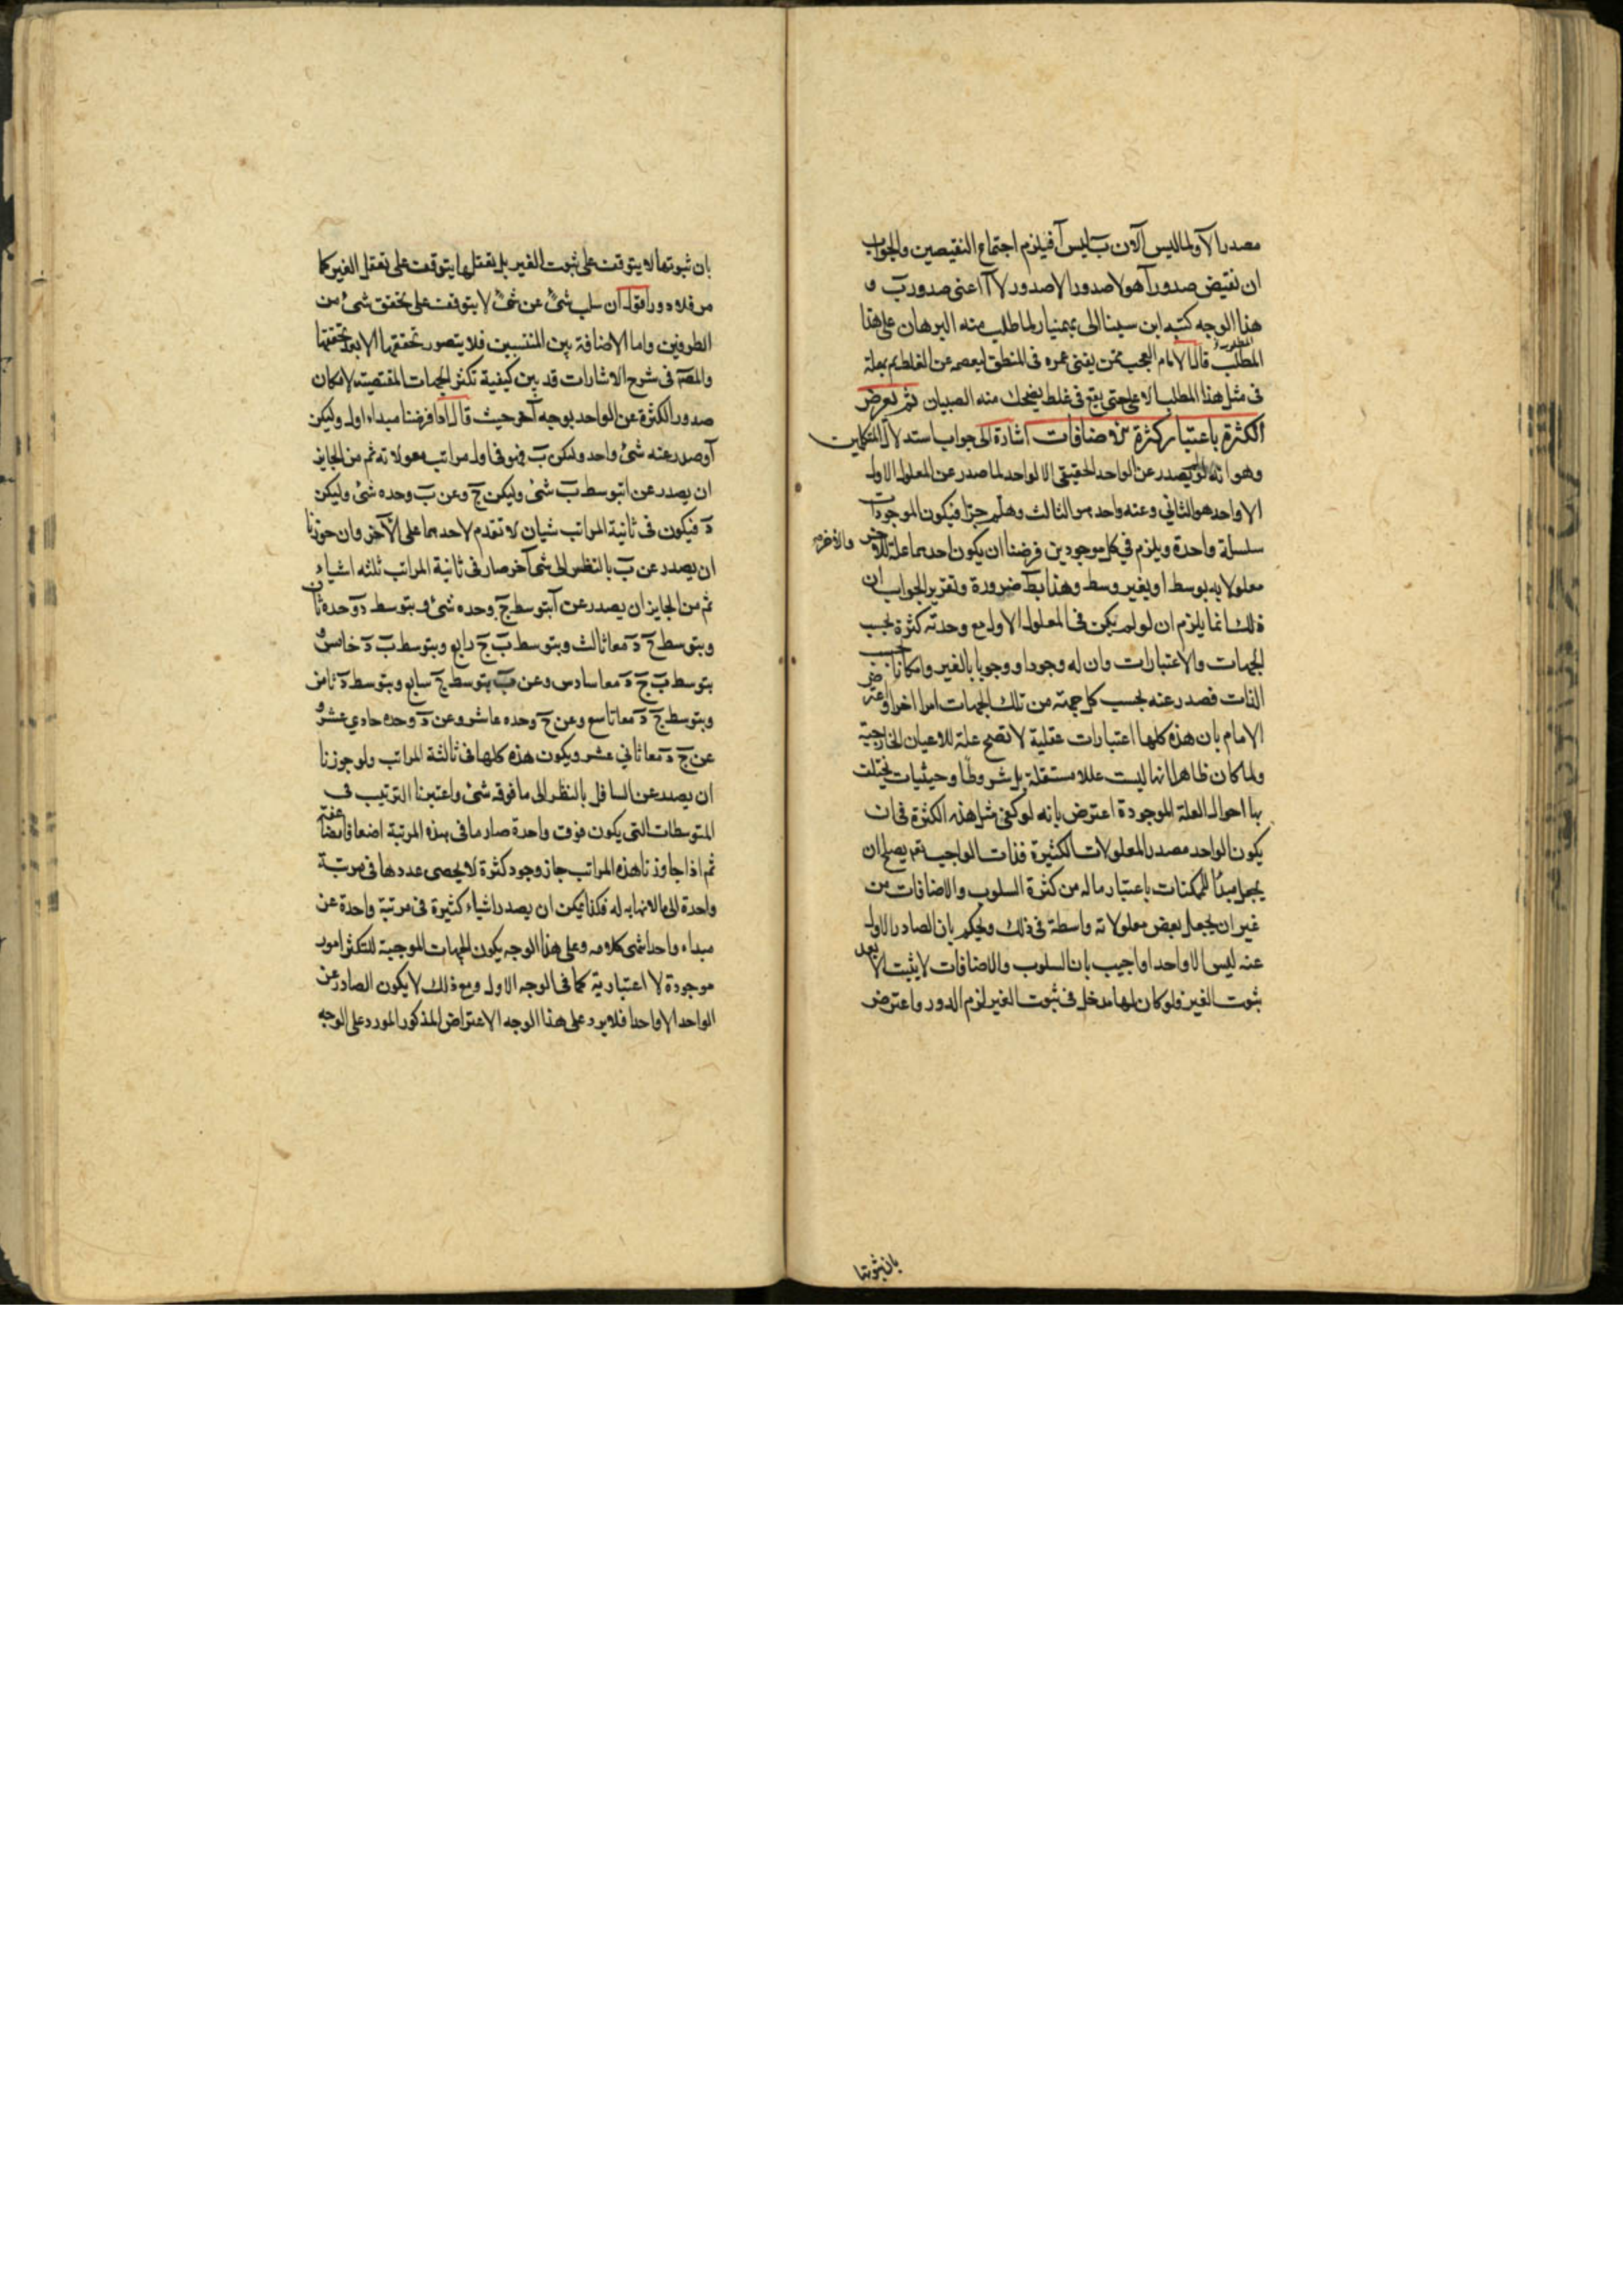 مصدرا لآ ولما ليس آ لان ب ليس آ فيلزم اجتماع النقيضين والجواب
ان نقيض صدور آ هو لا صدور الا صدور لا آ اعنى صدور ب و
هذا الوجه كتبه ابن سينا الى بهمنيار لما طلب منه البرهان على هذا
المطلب قال الامام العجب ممن يفنى عمره فى المنطق ليعصمه عن الغلط ثم يهمله
فى مثل هذا المطلب الاعلى حتى يقع فى غلط يضحك منه الصبيان ثم تعرض
الكثرة باعتبار كثرة الاضافات اشارة الى جواب استدلال المتكلمين
وهو انه لو لم يصدر عن الواحد الحقيقى الا لواحد لما صدر عن المعلول الاول
الا واحد هو الثانى وعنه واحد هو الثالث وهلم جرا فيكون الموجودات
سلسلة واحدة ويلزم فى كل موجودين فرضنا ان يكون احدهما علة للآخر والآخر
معلولا به بوسط او بغير وسط وهذا بط ضرورة وتقرير الجواب ان
ذلك انما يلزم ان لو لم يكن فى المعلول الاول مع وحدته كثرة بحسب
الجهات والاعتبارات وان له وجودا ووجوبا بالغير وامكانا
الذات فصدر عنه بحسب كل جهة من تلك الجهات امرا اخر واعترض
الامام بان هذه كلها اعتبارات عقلية لا تصح علة للاعيان الخارجية
ولما كان ظاهرا انها ليست عللا مستقلة بل شروطا وحيثيات تختلف
بها احوال العلة الموجودة اعترض بانه لو كفى مثل هذه الكثرة فى ان
يكون الواحد مصدر المعلولات الكثيرة فذات الواجب تع يصلح ان
يجعل مبدأ للممكنات باعتبار ما له من كثرة السلوب والاضافات من
غير ان يجعل بعض معلولاته واسطة فى ذلك ويحكم بان الصادر الاول
عنه ليس الا واحدا واجيب بان السلوب والاضافات لا يثبت الا بعد
ثبوت الغير فلو كان لها مدخل فى ثبوت الغير لزم الدور واعترض
بان ثبوتها
بان ثبوتها لا يتوقف على ثبوت الغير بل تعقلها يتوقف على تعقل الغير كما
مر فلا دور اقول ان سلب شئ عن شئ لا يتوقف على تحقق شئ من
الطرفين واما الاضافة بين المنتسبين فلا يتصور تحققها الا بعد تحققهما
والمصّ فى شرح الاشارات قد بين كيفية تكثر الجهات المقتضية لامكان
صدور الكثرة عن الواحد بوجه آخر حيث قال اذا فرضنا مبداء اول وليكن
آ وصدر عنه شئ واحد وليكن ب فهو فى اول مراتب معلولاته ثم من الجايز
ان يصدر عن آ بتوسط ب شئ وليكن ج وعن ب وحده شئ وليكن
د فيكون فى ثانية المراتب شيان لا تقدم لاحدهما على الآخر وان جوزنا
ان يصدر عن ب بالنظر الى شئ آخر صار فى ثانية المراتب ثلثه اشياء
ثم من الجايز ان يصدر عن آ بتوسط ج وحده شئ و بتوسط د وحده ثان
وبتوسط ج د معا ثالث وبتوسط ب ج رابع وبتوسط ب د خامس و
بتوسط ب ج د معا سادس وعن ب بتوسط ج سابع وبتوسط د ثامن
وبتوسط ج د معا تاسع وعن ج وحده عاشر وعن د وحده حادي عشر و
عن ج د معا ثاني عشر ويكون هذه كلها فى ثالثة المراتب ولو جوزنا
ان يصدر عن السافل بالنظر الى ما فوقه شئ واعتبرنا الترتيب فى
المتوسطات التى يكون فوق واحدة صار ما فى هذه المرتبة اضعافا مضاعفة
ثم اذا جاوزنا هذه المراتب جاز وجود كثرة لا يحصى عددها فى مرتبة
واحدة الى ما لا نهاية له فكذا يمكن ان يصدر اشياء كثيرة فى مرتبة واحدة عن
مبداء واحد انتهى كلامه وعلى هذا الوجه يكون الجهات الموجبة للتكثر امور
موجودة لا اعتبارية كما فى الوجه الاول ومع ذلك لا يكون الصادر عن
الواحد الا واحدا فلا يرد على هذا الوجه الاعتراض المذكور المورد على الوجه